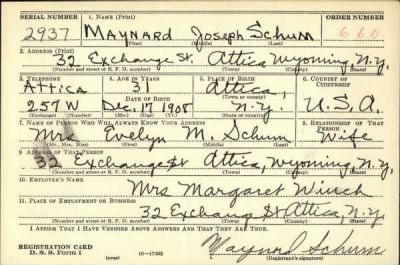 SERIAL NUMBER 1. NAME (Print) ORDER NUMBER
2937 MAYNARD Joseph Schum 660
(First) (Middle) (Last)
2. ADDRESS (Print)
32 Exchange St. Attica Wyoming N.Y.
(Number and street or R. F. D. number) (Town) (County) (State)
3. TELEPHONE 4. AGE IN YEARS 5. PLACE OF BIRTH 6. COUNTRY OF CITIZENSHIP
Attica 31 Attica,
DATE OF BIRTH
257W Dec. 17 1908 N.Y. U.S.A.
7. NAME OF PERSON WHO WILL ALWAYS KNOW YOUR ADDRESS 8. RELATIONSHIP OF THAT PERSON
Mrs Evelyn M. Schum Wife
(Mr., Mrs., Miss) (First) (Middle) (Last)
9. ADDRESS OF THAT PERSON
32 Exchange St Attica, Wyoming, N.Y.
(Number and street or R. F. D. number) (Town) (County) (State)
10. EMPLOYER'S NAME
Mrs Margaret Winch
11. PLACE OF EMPLOYMENT OR BUSINESS
32 Exchange St Attica, N.Y.
(Number and street or R. F. D. number) (Town) (County) (State)
I AFFIRM THAT I HAVE VERIFIED ABOVE ANSWERS AND THAT THEY ARE TRUE.
REGISTRATION CARD
D. S. S. FORM 1 (over) 16-17105 Maynard Schum
(Registrant's signature)